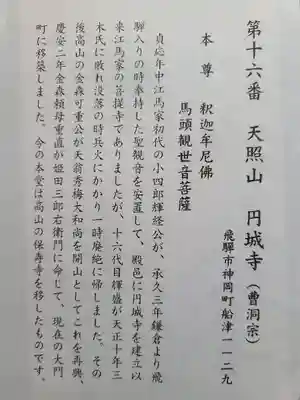 第十六番　天照山　円城寺（曹洞宗）
飛騨市神岡町船津一一二九
本尊　釈迦牟尼佛
馬頭観世音菩薩
貞応年中江馬家初代の小四郎輝経公が、承久三年鎌倉より飛
騨入りの時奉持した聖観音を安置して、殿邑に円城寺を建立以
来江馬家の菩提寺でありましたが、十六代目輝盛が天正十年三
木氏に敗れ没落の時兵火にかかり一時廃絶に帰しました。その
後高山の金森可重公が天翁秀梅大和尚を開山としてこれを再興、
慶安二年金森頼母重直が姫田三郎右衛門に命じて、現在の大門
町に移築しました。今の本堂は高山の保寿寺を移したものです。